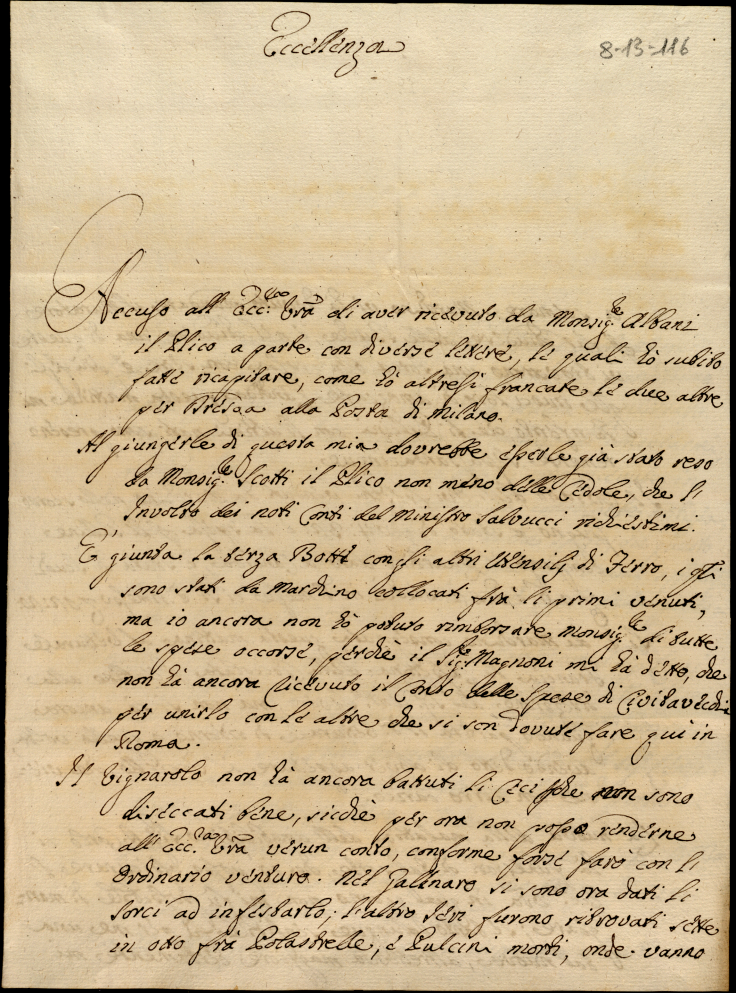 Eccellenza
8-13-116
Accuso all' Ecc.za Vra di aver ricevuto da Monsig.re Albani
il Plico a parte con diverse lettere, le quali hò subito
fatte ricapitare, come hò altresì francate le due altre
per Brescia alla Posta di Milano.
Al giungerle di questa mia dovrebbe esserle già stato reso
da Monsig.re Scotti il Plico non meno delle Cedole, che l'
Involto dei noti Conti del Ministro Salvucci richiestimi.
E' giunta la terza Botte con gli altri Utensilj di Ferro, i q.li
sono stati da Marchino collocati frà li primi venuti,
ma io ancora non hò potuto rimborsare Monsig.re di tutte
le spese occorse, perchè il Sig.r Magnoni mi hà detto, che
non hà ancora ricevuto il Conto delle spese di Civitavecchia
per unirlo con le altre che si son dovute fare quì in
Roma.
Il Vignarolo non hà ancora battuti li Ceci che non sono
diseccati bene, sicchè per ora non posso renderne
all' Ecc.za Vra verun conto, conforme forse farò con l'
Ordinario venturo. Nel Galinaro si sono ora dati li
sorci ad infestarlo; l'altro jeri furono ritrovati sette
in otto frà Polastrelle, è Pulcini morti, onde vanno